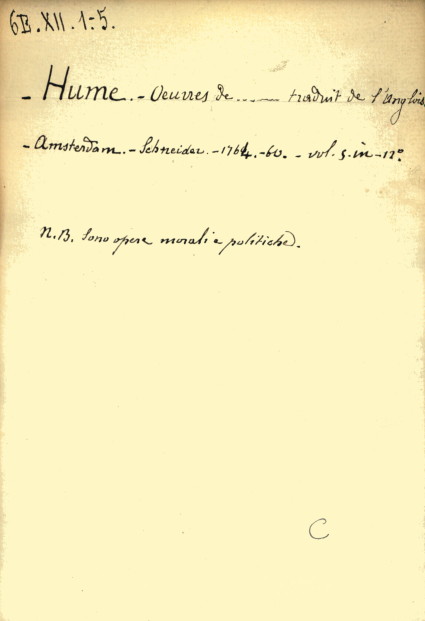 6E.XII.1-5.
- Hume. - Oeuvres de ...... traduit de l'Anglois.
- Amsterdam. - Schneider. - 1764. - 60. - vol. 5. in - 12°
N.B. Sono opere morali e politiche.
C